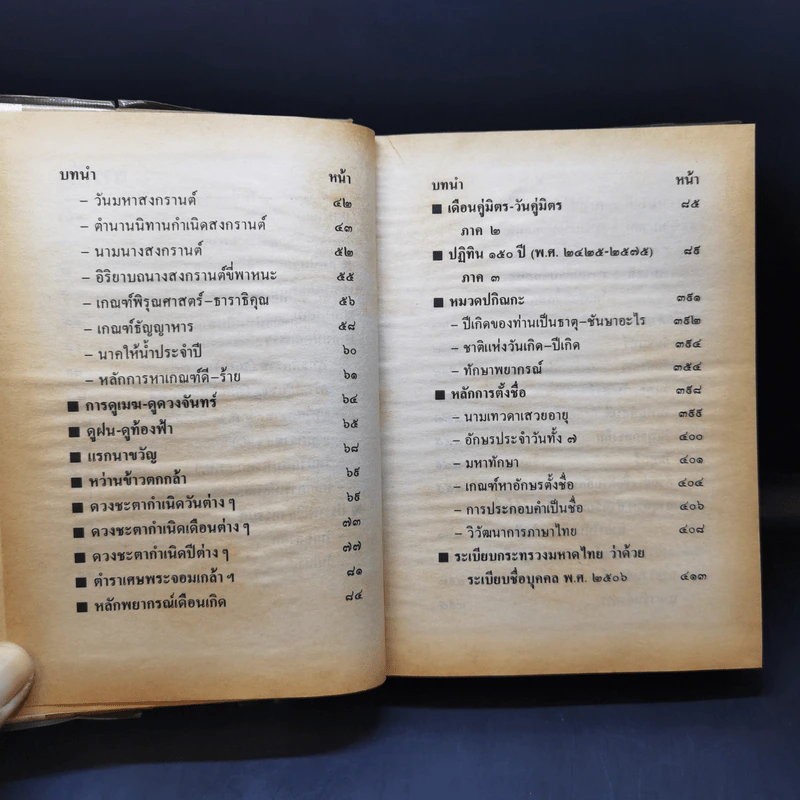 บทนำ หน้า
– วันมหาสงกรานต์ ๔๒
– ตำนานนิทานกำเนิดสงกรานต์ ๔๓
– นามนางสงกรานต์ ๕๒
– อิริยาบถนางสงกรานต์ขี่พาหนะ ๕๕
– เกณฑ์พิรุณศาสตร์–ธาราธิคุณ ๕๖
– เกณฑ์ธัญญาหาร ๕๘
– นาคให้น้ำประจำปี ๖๐
– หลักการหาเกณฑ์ดี–ร้าย ๖๑
■ การดูเมฆ-ดูดวงจันทร์ ๖๔
■ ดูฝน-ดูท้องฟ้า ๖๕
■ แรกนาขวัญ ๖๘
■ หว่านข้าวตกกล้า ๖๙
■ ดวงชะตากำเนิดวันต่าง ๆ ๖๙
■ ดวงชะตากำเนิดเดือนต่าง ๆ ๗๓
■ ดวงชะตากำเนิดปีต่าง ๆ ๗๗
■ ตำราเศษพระจอมเกล้า ฯ ๘๑
■ หลักพยากรณ์เดือนเกิด ๘๔
บทนำ หน้า
■ เดือนคู่มิตร-วันคู่มิตร ๘๕
ภาค ๒
■ ปฏิทิน ๑๕๐ ปี (พ.ศ. ๒๔๒๕-๒๕๗๕) ๘๙
ภาค ๓
■ หมวดปกิณกะ ๓๙๑
– ปีเกิดของท่านเป็นธาตุ–ชันษาอะไร ๓๙๒
– ชาติแห่งวันเกิด–ปีเกิด ๓๙๔
– ทักษาพยากรณ์ ๓๕๔
■ หลักการตั้งชื่อ ๓๙๘
– นามเทวดาเสวยอายุ ๓๙๙
– อักษรประจำวันทั้ง ๗ ๔๐๐
– มหาทักษา ๔๐๑
– เกณฑ์หาอักษรตั้งชื่อ ๔๐๔
– การประกอบคำเป็นชื่อ ๔๐๖
– วิวัฒนาการภาษาไทย ๔๐๘
■ ระเบียบกระทรวงมหาดไทย ว่าด้วย
ระเบียบชื่อบุคคล พ.ศ. ๒๕๐๖ ๔๑๓